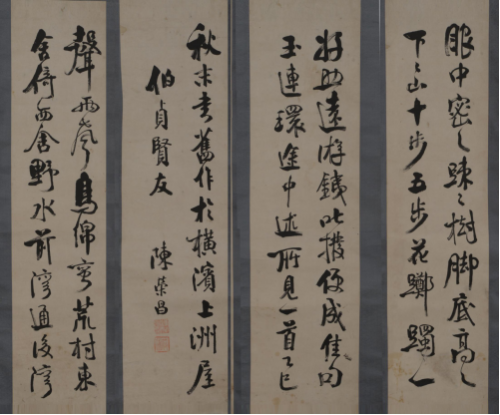 眼中密〻踈〻樹脚底高〻
下〻山十步五步花躑躅一
好助遠游銕叱撥便成佳句
玉連環途中述所見一首乙巳
秋末書舊作於橫濱上洲屋
伯貞賢友 陳榮昌
聲兩聲鳥綿蠻荒村東
舍倚西舍野水前灣通後灣